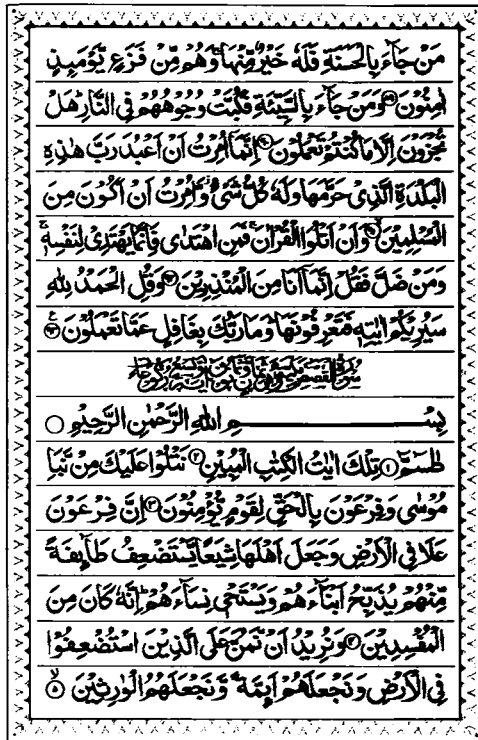 مَنْ جَآءَ بِالْحَسَنَةِ فَلَهٗ خَيْرٌ مِّنْهَا ۚ وَهُمْ مِّنْ فَزَعٍ يَّوْمَئِذٍ
اٰمِنُوْنَ ۝۸۹ وَمَنْ جَآءَ بِالسَّيِّئَةِ فَكُبَّتْ وُجُوْهُهُمْ فِى النَّارِ ؕ هَلْ
تُجْزَوْنَ اِلَّا مَا كُنْتُمْ تَعْمَلُوْنَ ۝۹۰ اِنَّمَآ اُمِرْتُ اَنْ اَعْبُدَ رَبَّ هٰذِهِ
الْبَلْدَةِ الَّذِىْ حَرَّمَهَا وَلَهٗ كُلُّ شَىْءٍ ؗ وَّاُمِرْتُ اَنْ اَكُوْنَ مِنَ
الْمُسْلِمِيْنَ ۝۹۱ وَاَنْ اَتْلُوَا الْقُرْاٰنَ ۚ فَمَنِ اهْتَدٰى فَاِنَّمَا يَهْتَدِىْ لِنَفْسِهٖ ۚ
وَمَنْ ضَلَّ فَقُلْ اِنَّمَآ اَنَا مِنَ الْمُنْذِرِيْنَ ۝۹۲ وَقُلِ الْحَمْدُ لِلّٰهِ
سَيُرِيْكُمْ اٰيٰتِهٖ فَتَعْرِفُوْنَهَا ؕ وَمَا رَبُّكَ بِغَافِلٍ عَمَّا تَعْمَلُوْنَ ۝۹۳
بِسْمِ اللّٰهِ الرَّحْمٰنِ الرَّحِيْمِ ۝
طٰسٓمّٓ ۝۱ تِلْكَ اٰيٰتُ الْكِتٰبِ الْمُبِيْنِ ۝۲ نَتْلُوْا عَلَيْكَ مِنْ نَّبَاِ
مُوْسٰى وَفِرْعَوْنَ بِالْحَقِّ لِقَوْمٍ يُّؤْمِنُوْنَ ۝۳ اِنَّ فِرْعَوْنَ
عَلَا فِى الْاَرْضِ وَجَعَلَ اَهْلَهَا شِيَعًا يَّسْتَضْعِفُ طَآئِفَةً
مِّنْهُمْ يُذَبِّحُ اَبْنَآءَهُمْ وَيَسْتَحْىٖ نِسَآءَهُمْ ؕ اِنَّهٗ كَانَ مِنَ
الْمُفْسِدِيْنَ ۝۴ وَنُرِيْدُ اَنْ نَّمُنَّ عَلَى الَّذِيْنَ اسْتُضْعِفُوْا
فِى الْاَرْضِ وَنَجْعَلَهُمْ اَئِمَّةً وَّنَجْعَلَهُمُ الْوٰرِثِيْنَ ۝۵